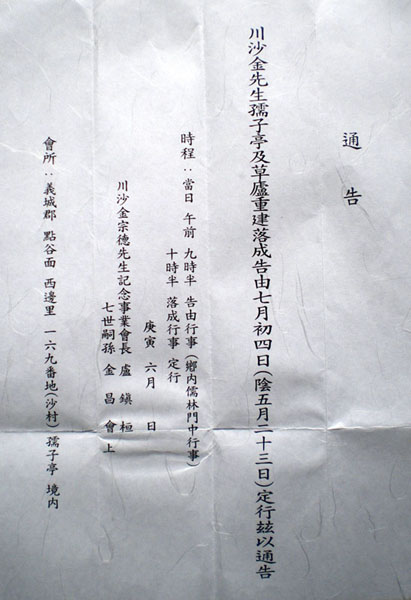 通告
川沙金先生孺子亭及草廬重建落成告由七月初四日(陰五月二十三日)定行玆以通告
時程:當日 午前 九時半 告由行事(鄕內儒林門中行事)
十時半 落成行事 定行
庚寅 六月 日
川沙金宗德先生記念事業會長 盧鎭桓
七世嗣孫 金昌會 上
會所:義城郡 點谷面 西邊里 一六九番地(沙村) 孺子亭 境內